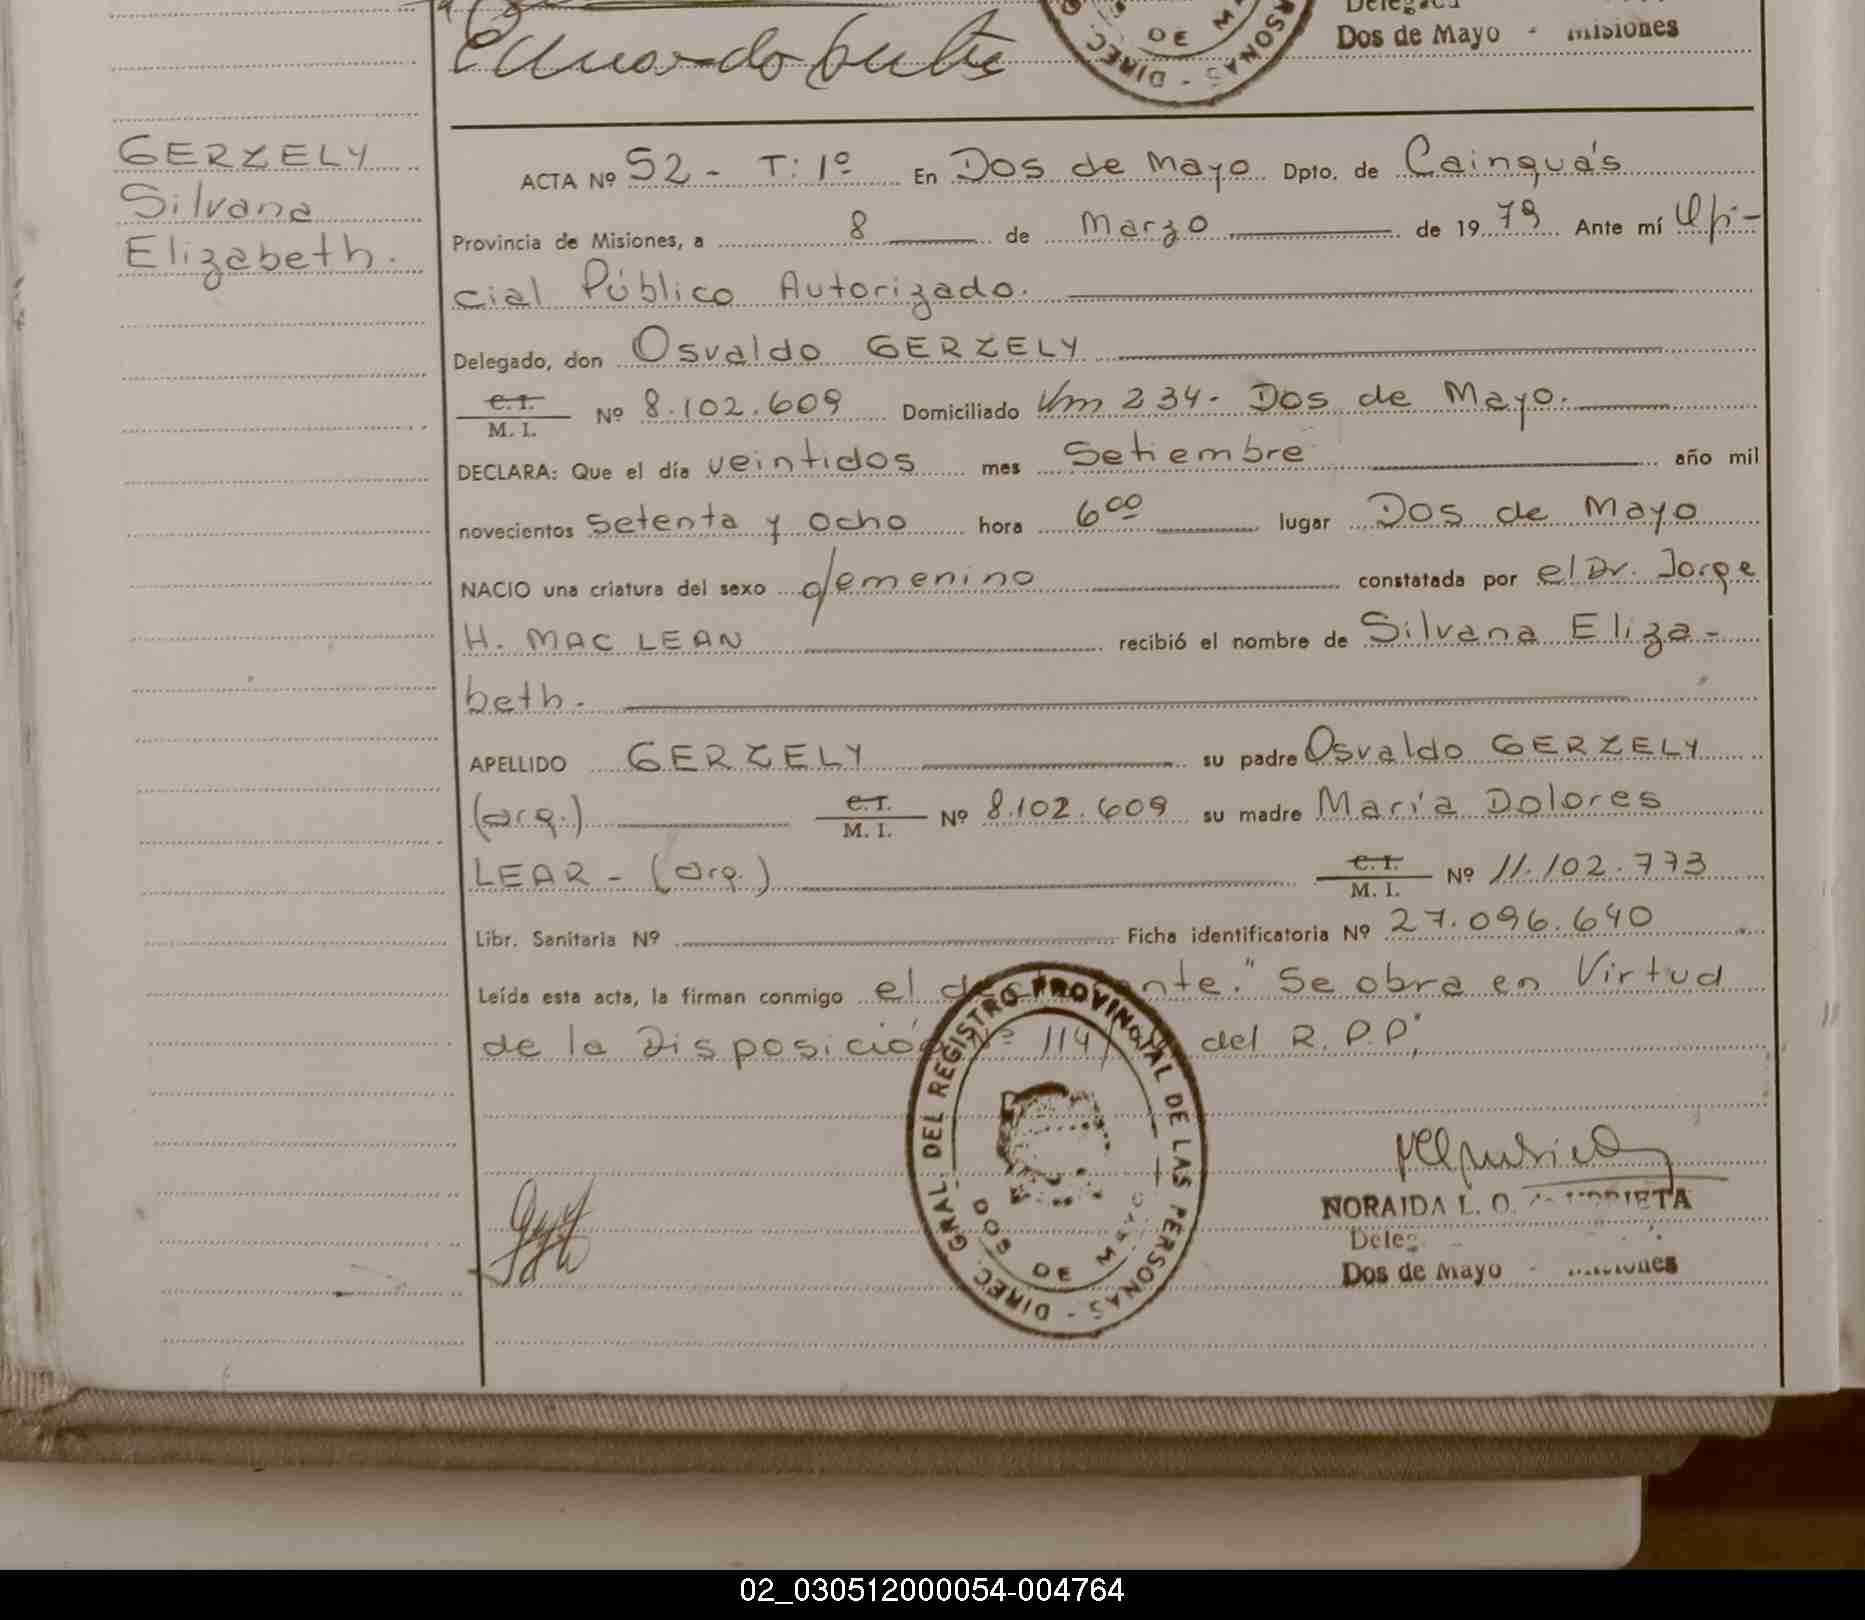 Delegada
Dos de Mayo - Misiones
DE
DIREC. PERSONAS -
GERZELY
Silvana
Elizabeth.
ACTA Nº 52 - T: 1º En Dos de Mayo Dpto. de Cainguás
Provincia de Misiones, a 8 de Marzo de 1979 Ante mí Ofi-
cial Público Autorizado.
Delegado, don Osvaldo GERZELY
C.I.
M. I. Nº 8.102.609 Domiciliado Km 234. Dos de Mayo.
DECLARA: Que el día veintidos mes Setiembre año mil
novecientos setenta y ocho hora 6 00 lugar Dos de Mayo
NACIO una criatura del sexo femenino constatada por el Dr. Jorge
H. MAC LEAN recibió el nombre de Silvana Eliza-
beth.
APELLIDO GERZELY su padre Osvaldo GERZELY
(arg.) C.I.
M. I. Nº 8.102.609 su madre María Dolores
LEAR - (arg.) C.I.
M. I. Nº 11.102.773
Libr. Sanitaria Nº Ficha identificatoria Nº 27.096.640
Leída esta acta, la firman conmigo el "Se obra en Virtud
de la Disposición Nº 114/ del R.P.P."
DIREC. GRAL. DEL REGISTRO PROVINCIAL DE LAS PERSONAS -
DOS DE MAYO
NORAIDA L. O.
Dos de Mayo - Misiones
02_030512000054-004764